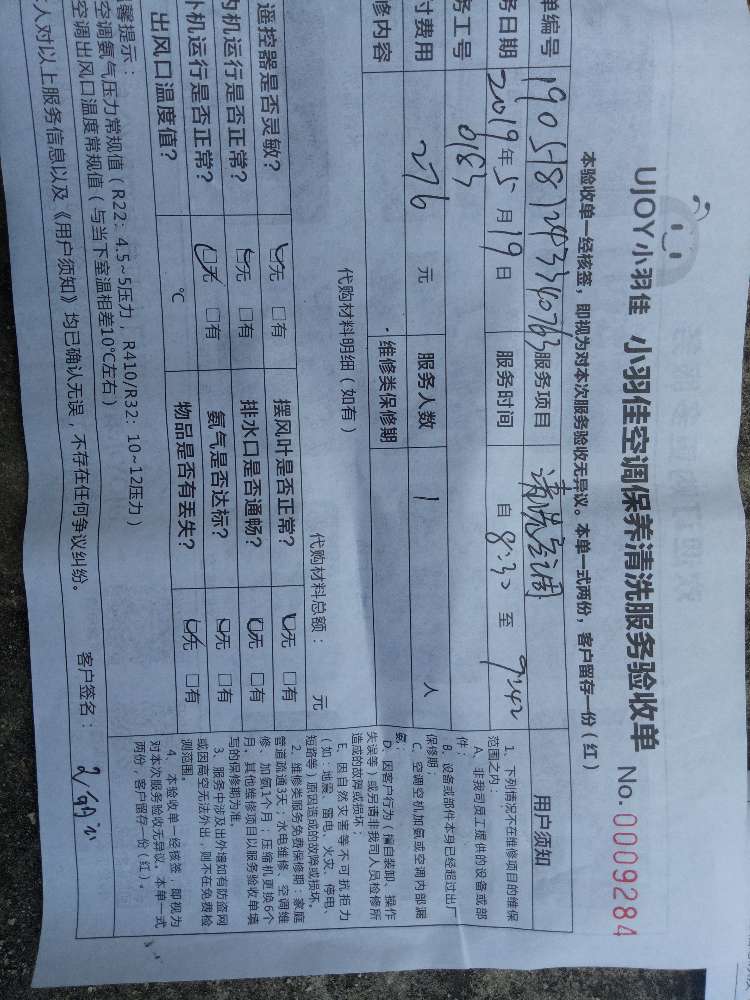 UJOY小羽佳 小羽佳空调保养清洗服务验收单 No. 0009284
本验收单一经核签，即视为对本次服务验收无异议。本单一式两份，客户留存一份（红）
单编号 19051812433740763 服务项目 清洗空调
务日期 2019年5月19日 服务时间 自8:30至9:42
务工号 0183
付费用 276 元 服务人数 1 人
修内容 维修类保修期
代购材料明细（如有） 代购材料总额： 元
遥控器是否灵敏？ 无 □有 摆风叶是否正常？ 无 □有
内机运行是否正常？ 无 □有 排水口是否通畅？ 无 □有
外机运行是否正常？ 无 □有 氨气是否达标？ 无 □有
出风口温度值？ ℃ 物品是否有丢失？ 无 □有
馨提示：
空调氨气压力常规值（R22：4.5~5压力，R410/R32：10~12压力）
空调出风口温度常规值（与当下室温相差10℃左右）
人对以上服务信息以及《用户须知》均已确认无误，不存在任何争议纠纷。 客户签名：
用户须知
1、下列情况不在维修项目的维保
范围之内：
A、非我司员工提供的设备或部
件；
B、设备或部件本身已经超过出厂
保修期；
C、空调空机加氨或空调内部漏
氨；
D、因客户行为（擅自装卸、操作
失误等）或另请非我司人员检修所
造成的故障或损坏；
E、因自然灾害等不可抗拒力
（如：地震、雷电、火灾、停电、
短路等）原因造成的故障或损坏。
2、维修类服务免费保修期：家庭
管道疏通3天；水电维修、空调维
修、加氨1个月；压缩机更换6个
月，其他维修项目以服务验收单填
写的保修期为准。
3、服务中涉及出外墙如有防盗网
或因高空无法外出，则不在免费检
测范围。
4、本验收单一经核签，即视为
对本次服务验收无异议，本单一式
两份，客户留存一份（红）。